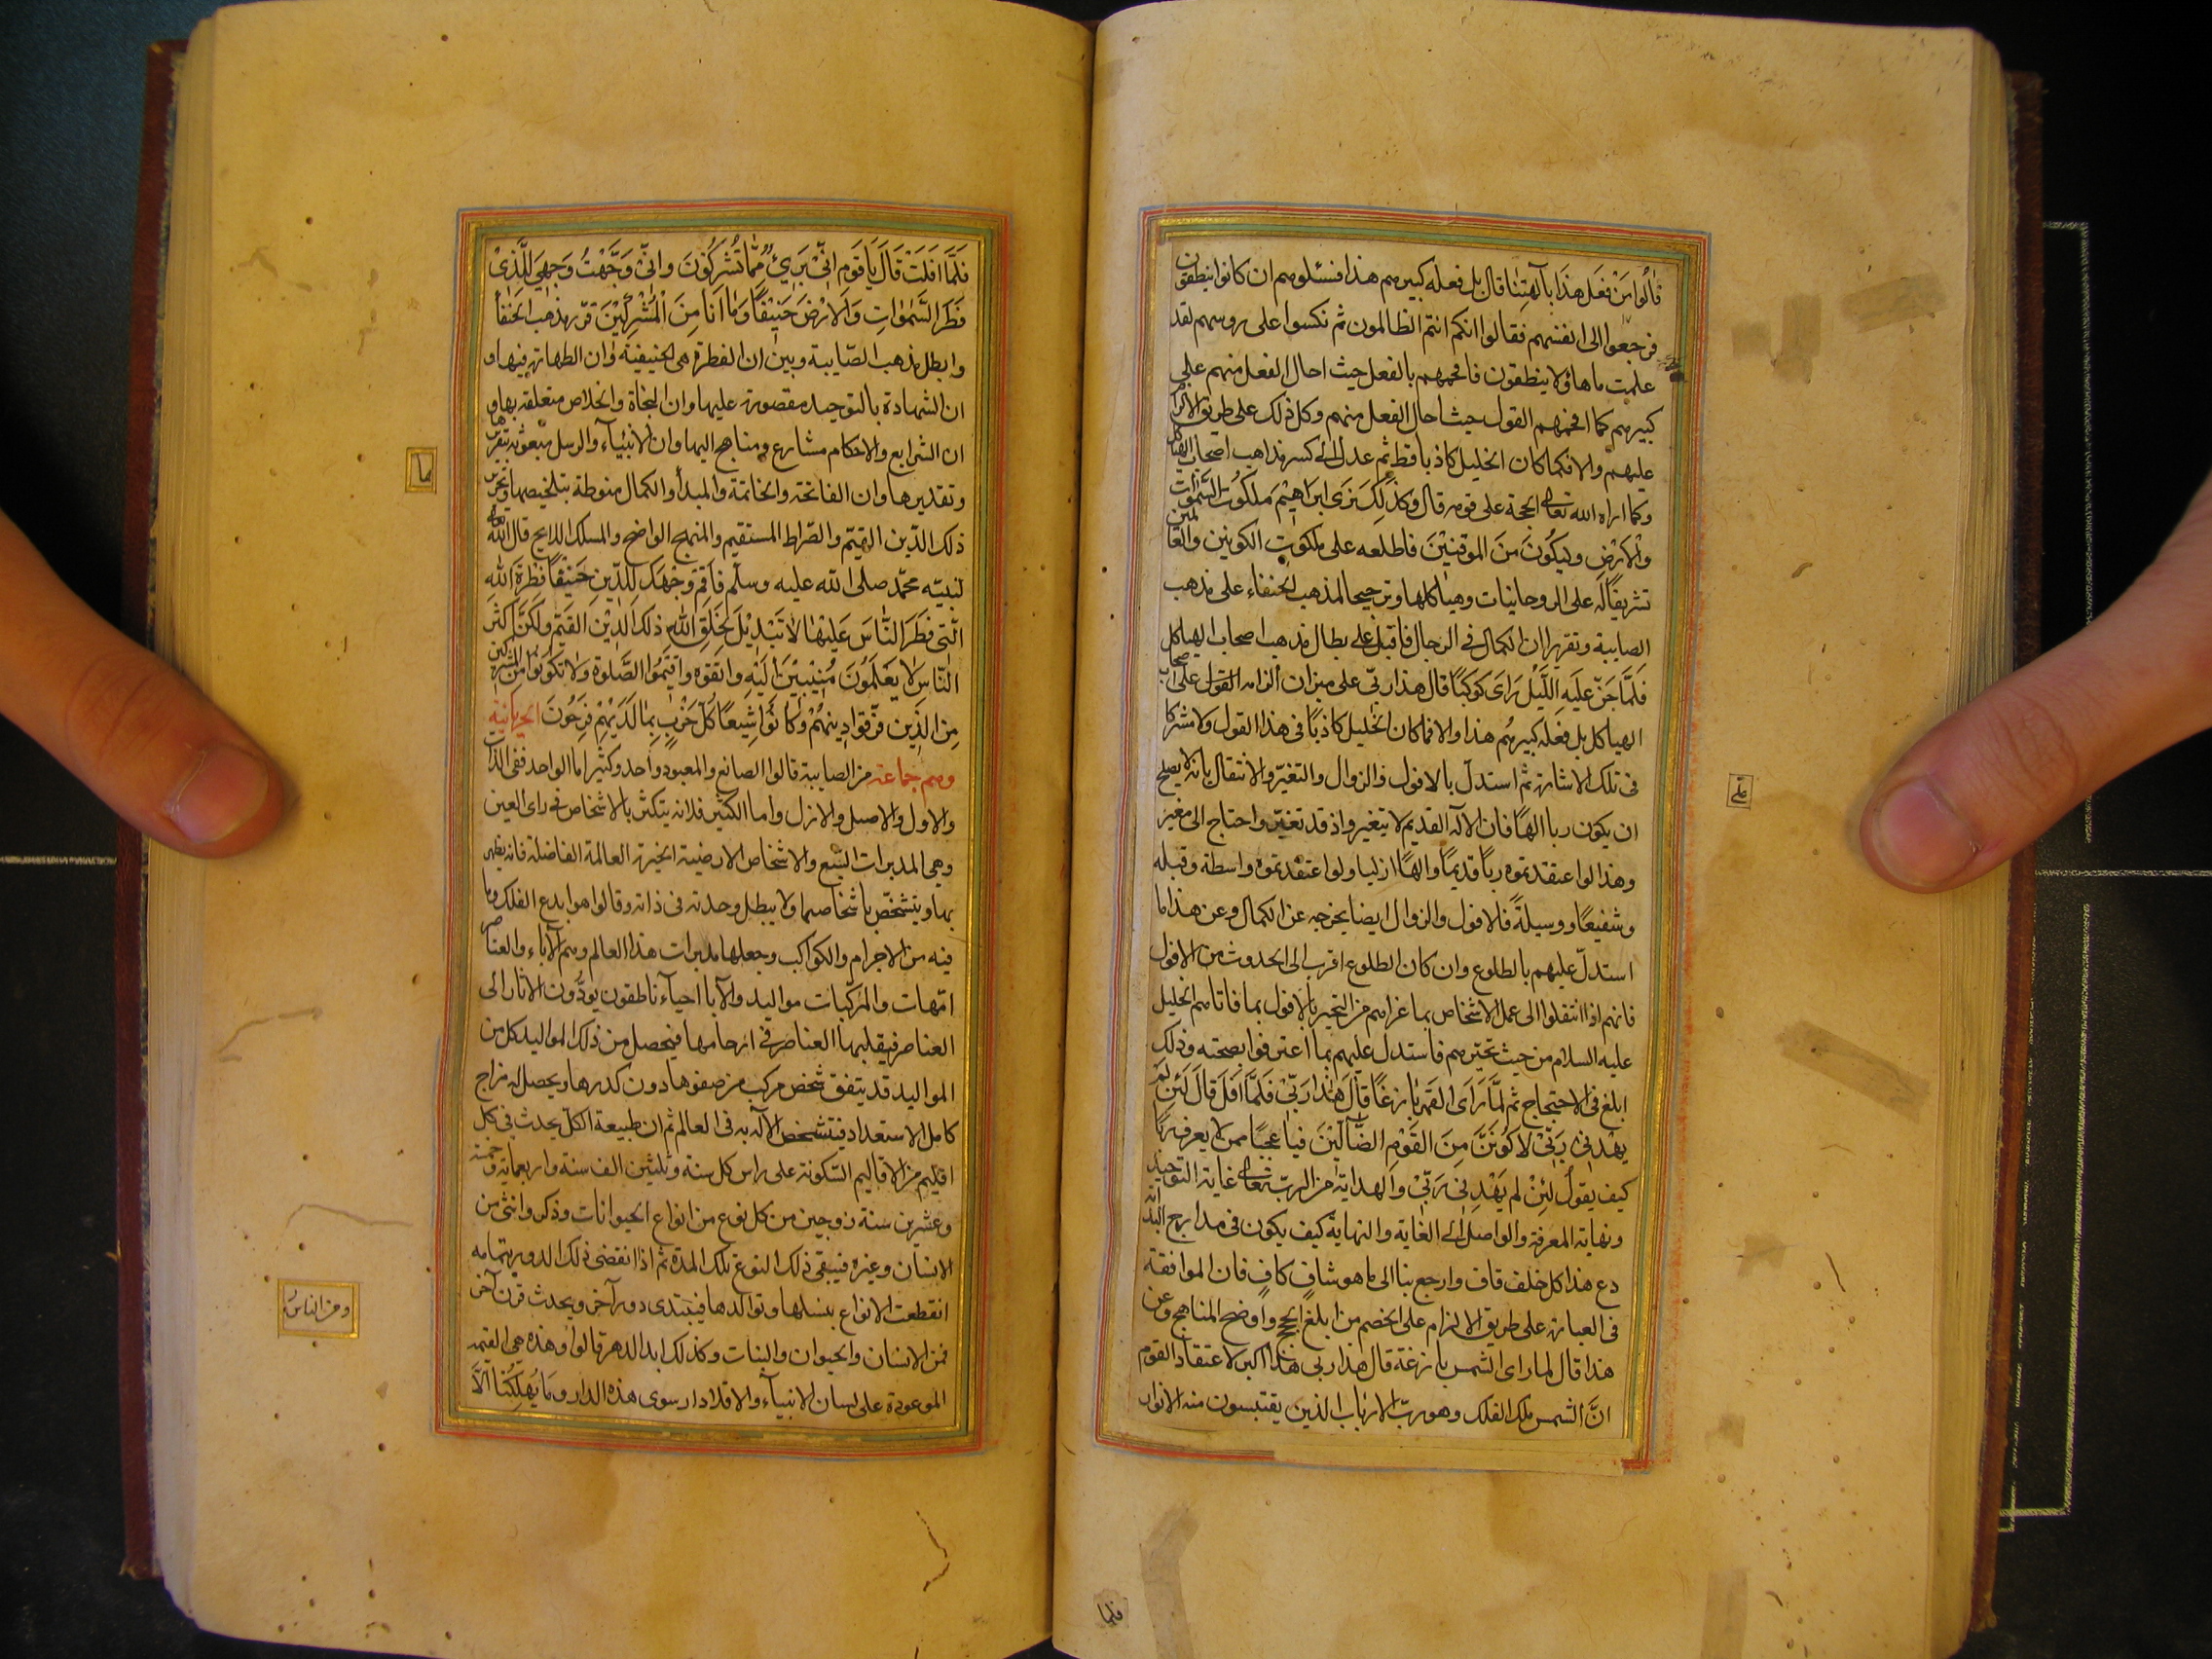 قالوا من فعل هذا بآلهتنا قال بل فعله كبيرهم هذا فسئلوهم ان كانوا ينطقون
فرجعوا الى انفسهم فقالوا انكم انتم الظالمون ثم نكسوا على رؤسهم لقد
علمت ما هؤلاء ينطقون فافحمهم بالفعل حيث احال الفعل منهم على
كبيرهم كما افحمهم القول حيث احال الفعل منهم وكل ذلك على طريق الالزام
عليهم والا فما كان الخليل كاذبا قط ثم عدل الى كسر مذاهب اصحاب الهياكل
وكما اراه الله تعالى الحجة على قومه قال وكذلك نرى ابراهيم ملكوت السموات
والارض وليكون من الموقنين فاطلعه على ملكوت الكونين والعالمين
تشريفا له على الروحانيات وهياكلها وترجيحا لمذهب الحنفاء على مذهب
الصابية وتقريرا ان الكمال في الرجال فاقبل على ابطال مذهب اصحاب الهياكل
فلما جن عليه الليل راى كوكبا قال هذا ربي على ميزان الزامه القول على اصحاب
الهياكل بل فعله كبيرهم هذا والا فما كان الخليل كاذبا في هذا القول ولا مشركا
في تلك الاشارة ثم استدل بالافول والزوال والتغير والانتقال بانه لا يصلح
ان يكون ربا الها فان الاله القديم لا يتغير واذ قد تغير واحتاج الى مغير
وهذا لو اعتقدتموه ربا قديما والها ازليا ولو اعتقدتموه واسطة وقبله
وشفيعا ووسيلة فالافول والزوال ايضا يخرجه عن الكمال وعن هذا ما
استدل عليهم بالطلوع وان كان الطلوع اقرب الى الحدوث من الافول
فانهم اذا انتقلوا الى عمل الاشخاص بما عراهم من التحير بالافول بما فاتاهم الخليل
عليه السلام من حيث تحيرهم فاستدل عليهم بما اعترفوا بصحته وذلك
ابلغ في الاحتجاج ثم لما راى القمر بازغا قال هذا ربي فلما افل قال لئن لم
يهدني ربي لاكونن من القوم الضالين فيا عجبا ممن لا يعرف ربا
كيف يقول لئن لم يهدني ربي والهداية من الرب تعالى غاية التوحيد
ونهاية المعرفة والواصل الى الغاية والنهاية كيف يكون في مدارج البداية
دع هذا كل خلف قاف وارجع بنا الى ما هو شاف كاف فان الموافقة
في العبارة على طريق الالزام على الخصم من ابلغ الحجج واوضح المناهج وعن
هذا قال لما راى الشمس بازغة قال هذا ربي هذا اكبر لاعتقاد القوم
ان الشمس ملك الفلك وهو رب الارباب الذين يقتبسون منه الانوار
فلما
فلما افلت قال يا قوم اني بريء مما تشركون واني وجهت وجهي للذي
فطر السموات والارض حنيفا وما انا من المشركين قرر مذهب الحنفا
وابطل مذهب الصابية وبين ان الفطرة هي الحنيفية وان الطهارة فيها و
ان الشهادة بالتوحيد مقصورة عليها وان النجاة والخلاص متعلقة بها و
ان الشرايع والاحكام مشارع ومناهج اليها وان الانبياء والرسل مبعوثة بتقريرها
وتقديرها وان الفاتحة والخاتمة والمبدأ والكمال منوطة بتلخيصها وتحريرها
ذلك الدين القيم والصراط المستقيم والمنهج الواضح والمسلك اللايح قال الله تعالى
لنبيه محمد صلى الله عليه وسلم فاقم وجهك للدين حنيفا فطرة الله
التي فطر الناس عليها لا تبديل لخلق الله ذلك الدين القيم ولكن اكثر
الناس لا يعلمون منيبين اليه واتقوه واقيموا الصلوة ولا تكونوا من المشركين
من الذين فرقوا دينهم وكانوا شيعا كل حزب بما لديهم فرحون الحربانية
وهم جماعة من الصابية قالوا الصانع والمعبود واحد وكثير اما الواحد ففي الذات
والاول والاصل والازل واما الكثير فلانه يتكثر بالاشخاص في راى العين
وهي المدبرات السبع والاشخاص الارضية الخيرة العالمة الفاضلة فانه يظهر
بها ويتشخص باشخاصها ولا يبطل وحدته في ذاته وقالوا هو ابدع الفلك وما
فيه من الاجرام والكواكب وجعلها مدبرات هذا العالم وهم الآباء والعناصر
امهات والمركبات مواليد والآبا احياء ناطقون يؤدون الاثار الى
العناصر فيقبلها العناصر في ارحامها فيحصل من ذلك المواليد كل من
المواليد قد يتفق شخص مركب من صفوها دون كدرها ويحصل له مزاج
كامل الاستعداد فيتشخص الاله به في العالم ثم ان طبيعة الكل يحدث في كل
اقليم من الاقاليم المسكونة على راس كل ستة وثلثين الف سنة واربعماية وخمسة
وعشرين سنة زوجين من كل نوع من انواع الحيوانات وذكر وانثى من
الانسان وغيره فيبقى ذلك النوع تلك المدة ثم اذا انقضى ذلك الدور بتمامه
انقطعت الانواع بنسلها وتوالدها فيبتدى دور آخر ويحدث قرن آخر
من الانسان والحيوان والنبات وكذلك ابد الدهر قالوا وهذه هي القيمة
الموعودة على لسان الانبياء والا فلا دار سوى هذه الدار وما يهلكنا الا